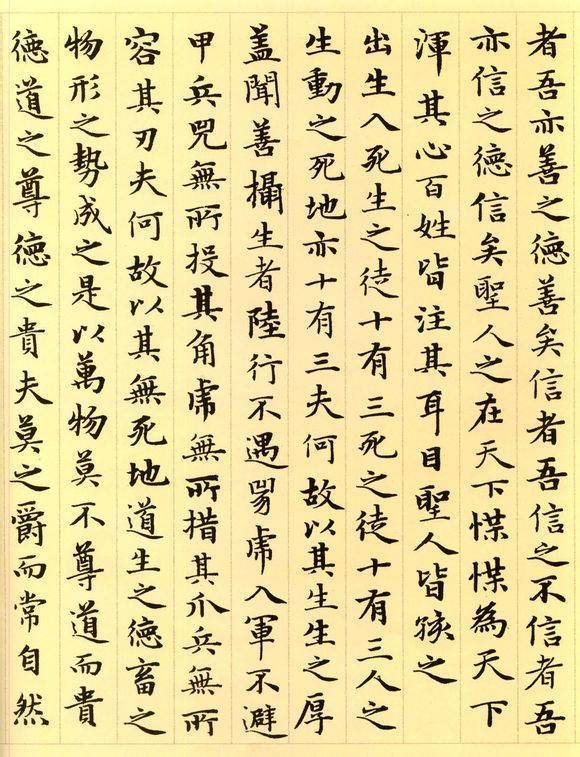 者吾亦善之德善矣信者吾信之不信者吾
亦信之德信矣聖人之在天下惵惵為天下
渾其心百姓皆注其耳目聖人皆孩之
出生入死生之徒十有三死之徒十有三人之
生動之死地亦十有三夫何故以其生生之厚
盖聞善攝生者陸行不遇兕虎入軍不避
甲兵兕無所投其角虎無所措其爪兵無所
容其刃夫何故以其無死地道生之德畜之
物形之勢成之是以萬物莫不尊道而貴
德道之尊德之貴夫莫之爵而常自然